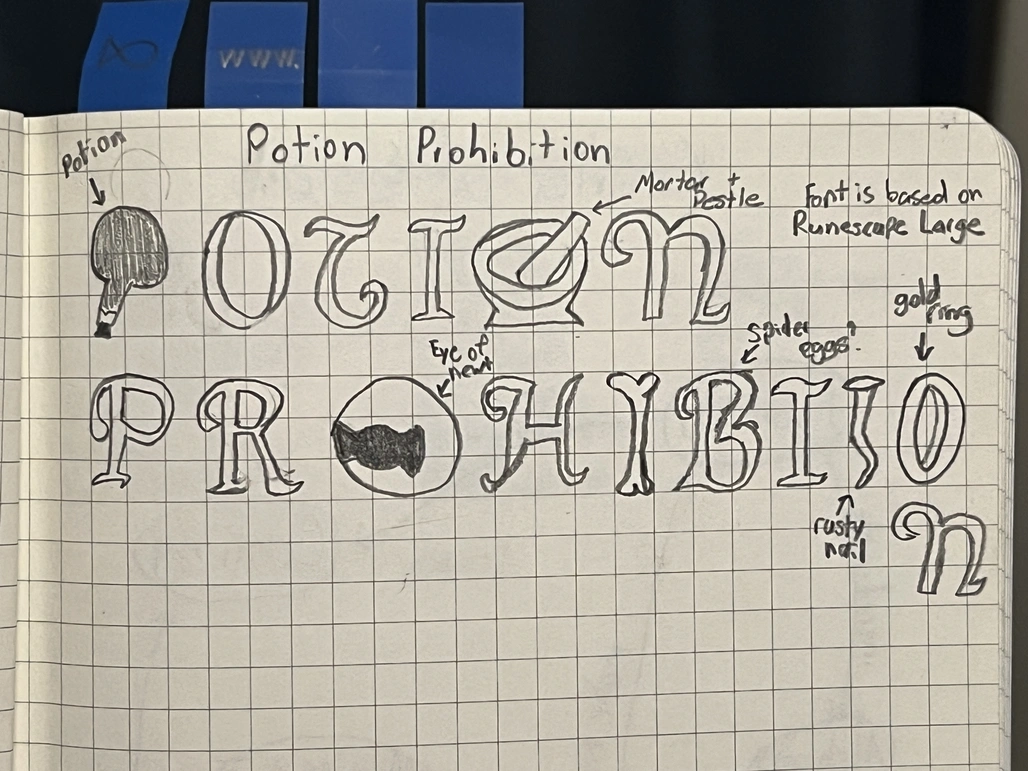 www.
Potion Prohibition
Potion
Mortar +
Pestle
Font is based on
Runescape Large
POTION
gold
ring
Eye of
newt
Spider
eggs?
PROHIBITIO
rusty
nail
N